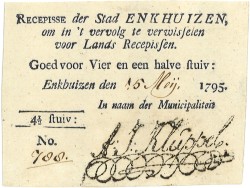 RECEPISSE der Stad ENKHUIZEN,
om in 't vervolg te verwisselen
voor Lands Recepissen.
Goed voor Vier en een halve stuiv:
Enkhuizen den 15 Meij 1795.
In naam der Municipaliteit
4½ stuiv:
No.
788.